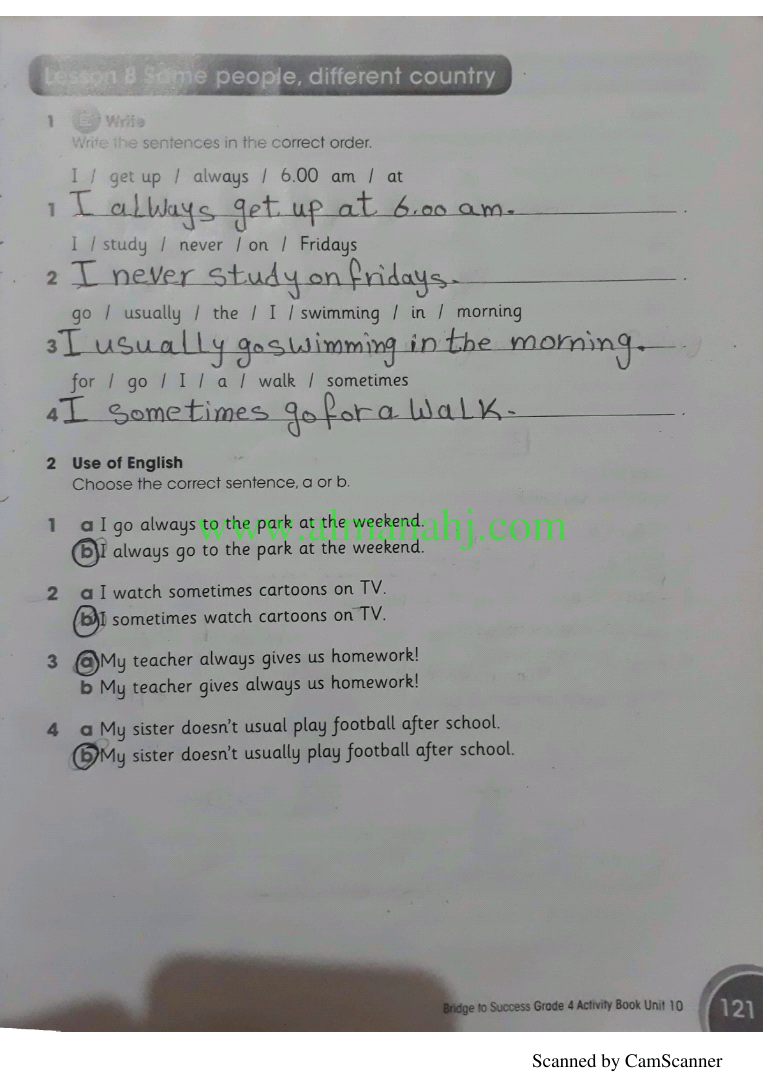 Lesson 8 Same people, different country
1 Write
Write the sentences in the correct order.
I / get up / always / 6.00 am / at
1 I always get up at 6.00 am.
I / study / never / on / Fridays
2 I never study on fridays.
go / usually / the / I / swimming / in / morning
3 I usually go swimming in the morning.
for / go / I / a / walk / sometimes
4 I sometimes go for a walk.
2 Use of English
Choose the correct sentence, a or b.
1 a I go always to the park at the weekend.
www.almanahj.com
b I always go to the park at the weekend.
2 a I watch sometimes cartoons on TV.
b I sometimes watch cartoons on TV.
3 a My teacher always gives us homework!
b My teacher gives always us homework!
4 a My sister doesn't usual play football after school.
b My sister doesn't usually play football after school.
Bridge to Success Grade 4 Activity Book Unit 10 121
Scanned by CamScanner